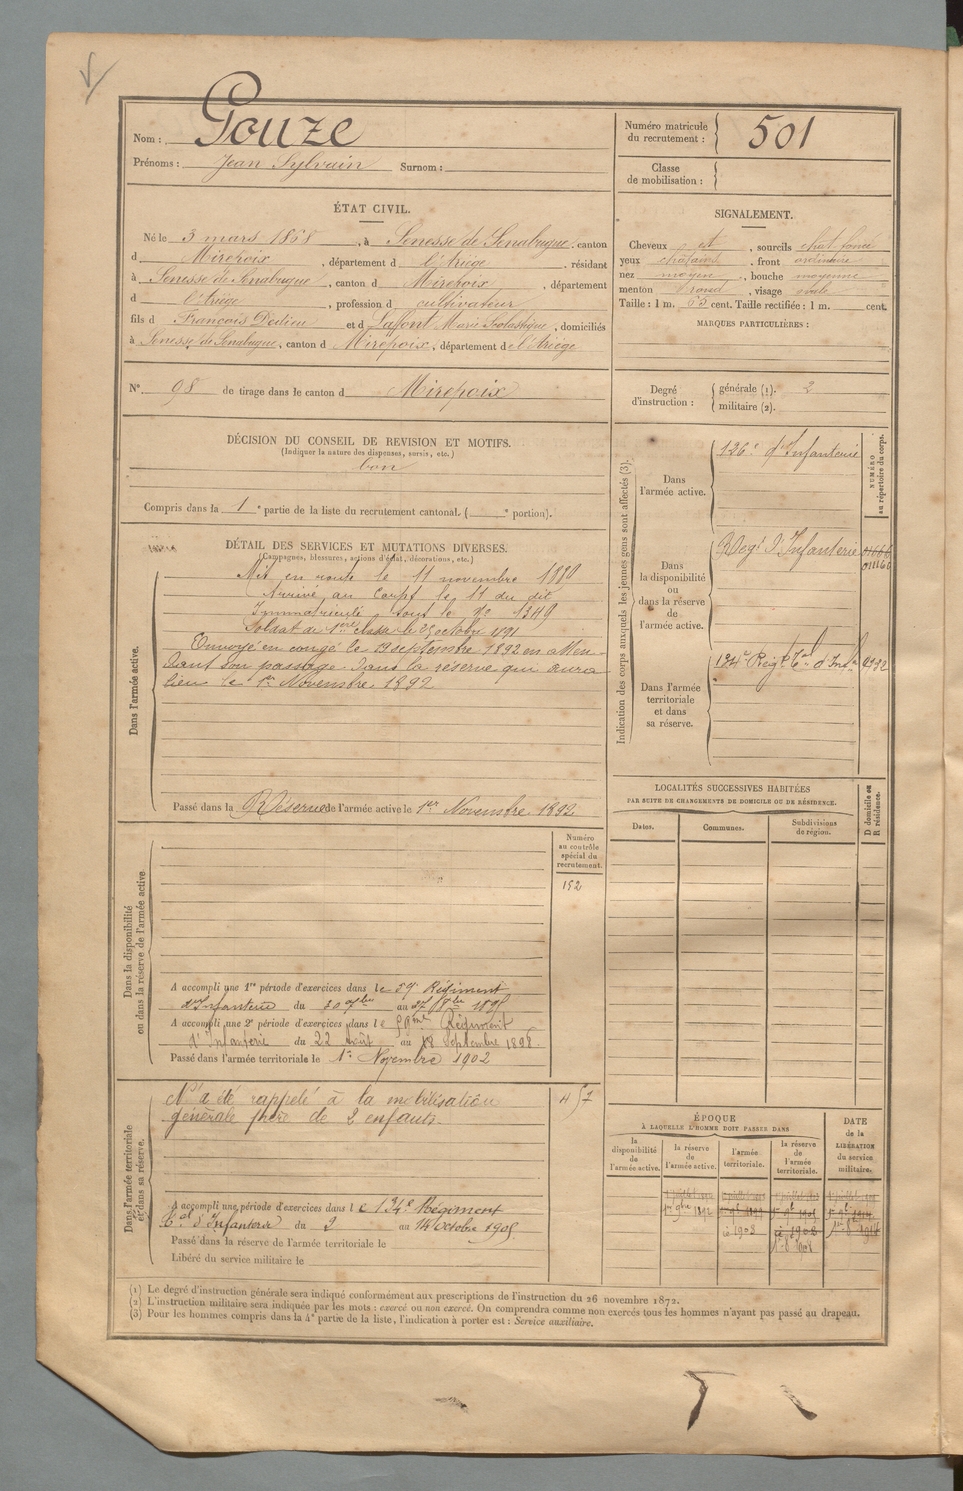 Nom : Gouze
Prénoms : Jean Sylvain Surnom :
Numéro matricule du recrutement : 501
Classe de mobilisation :
ÉTAT CIVIL.
Né le 3 mars 1868, à Senesse de Senabugue, canton
d Mirepoix, département d l'Ariège, résidant
à Senesse de Senabugue, canton d Mirepoix, département
d l'Ariège, profession d cultivateur
fils d François Dedieu et d Laffont Marie Scolastique, domiciliés
à Senesse de Senabugue, canton d Mirepoix, département de l'Ariège
N° 98 de tirage dans le canton d Mirepoix
SIGNALEMENT.
Cheveux et, sourcils chat. foncé
yeux chatains, front ordinaire
nez moyen, bouche moyenne
menton rond, visage ovale
Taille : 1 m. 63 cent. Taille rectifiée : 1 m. cent.
MARQUES PARTICULIÈRES :
Degré d'instruction :
générale (1). 2
militaire (2).
DÉCISION DU CONSEIL DE REVISION ET MOTIFS.
(Indiquer la nature des dispenses, sursis, etc.)
bon
Compris dans la 1e partie de la liste du recrutement cantonal. ( e portion).
DÉTAIL DES SERVICES ET MUTATIONS DIVERSES.
(Campagnes, blessures, actions d'éclat, décorations, etc.)
Dans l'armée active.
Mis en route le 11 novembre 1889
Arrivé au Corps le 11 du dit
Immatriculé sous le N° 1349
Soldat de 1ère classe le 23 octobre 1891
Envoyé en congé le 19 septembre 1892 en atten-
dant son passage dans la réserve qui aura
lieu le 1er Novembre 1892
Passé dans la Réserve de l'armée active le 1er Novembre 1892
Indication des corps auxquels les jeunes gens sont affectés (3).
NUMÉRO au répertoire du corps.
Dans l'armée active.
126e d'Infanterie
Dans la disponibilité ou dans la réserve de l'armée active.
Regt d'Infanterie
Dans l'armée territoriale et dans sa réserve.
134e Regt Tal d'Infie
LOCALITÉS SUCCESSIVES HABITÉES
PAR SUITE DE CHANGEMENTS DE DOMICILE OU DE RÉSIDENCE.
Dates. Communes. Subdivisions de région.
D domicile ou R résidence.
Dans la disponibilité ou dans la réserve de l'armée active.
Numéro au contrôle spécial du recrutement.
152
A accompli une 1re période d'exercices dans le 59e Régiment
d'Infanterie du 30 7bre au 27 8bre 1895
A accompli une 2e période d'exercices dans le 59me Régiment
d'Infanterie du 22 Août au 18 Septembre 1898
Passé dans l'armée territoriale le 1er Novembre 1902
Dans l'armée territoriale et dans sa réserve.
N'a été rappelé à la mobilisation
générale père de 2 enfants
A accompli une période d'exercices dans le 134e Régiment
Tal d'Infanterie du 2 au 14 Octobre 1905
Passé dans la réserve de l'armée territoriale le
Libéré du service militaire le
ÉPOQUE
À LAQUELLE L'HOMME DOIT PASSER DANS
la disponibilité de l'armée active.
la réserve de l'armée active.
l'armée territoriale.
la réserve de l'armée territoriale.
DATE de la LIBÉRATION du service militaire.
(1) Le degré d'instruction générale sera indiqué conformément aux prescriptions de l'instruction du 26 novembre 1872.
(2) L'instruction militaire sera indiquée par les mots : exercé ou non exercé. On comprendra comme non exercés tous les hommes n'ayant pas passé au drapeau.
(3) Pour les hommes compris dans la 4e partie de la liste, l'indication à porter est : Service auxiliaire.